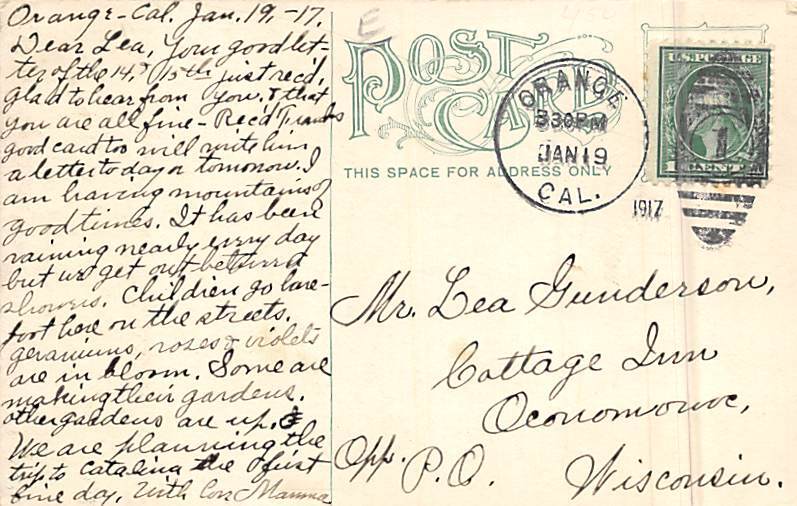 Orange-Cal. Jan. 19,-17.
Dear Lea, Your good let-
ter of the 14, & 15th just rec'd,
glad to hear from you. & that
you are all fine- Rec'd Franks
good card too will write him
a letter to day or tomorrow. I
am having mountains of
good times. It has been
raining nearly every day
but we get out between
showers. Children go bare-
foot here on the streets.
geraniums, roses & violets
are in bloom. Some are
making their gardens.
other gardens are up.
We are planning the
trip to Catalina the first
fine day. With love Mamma
E
POST
CARD
THIS SPACE FOR ADDRESS ONLY
ORANGE
530PM
JAN 19
CAL.
1917
U.S. POSTAGE
1 CENT 1
1
Mr. Lea Gunderson,
Cottage Inn
Oconomowoc,
Opp. P.O. Wisconsin.